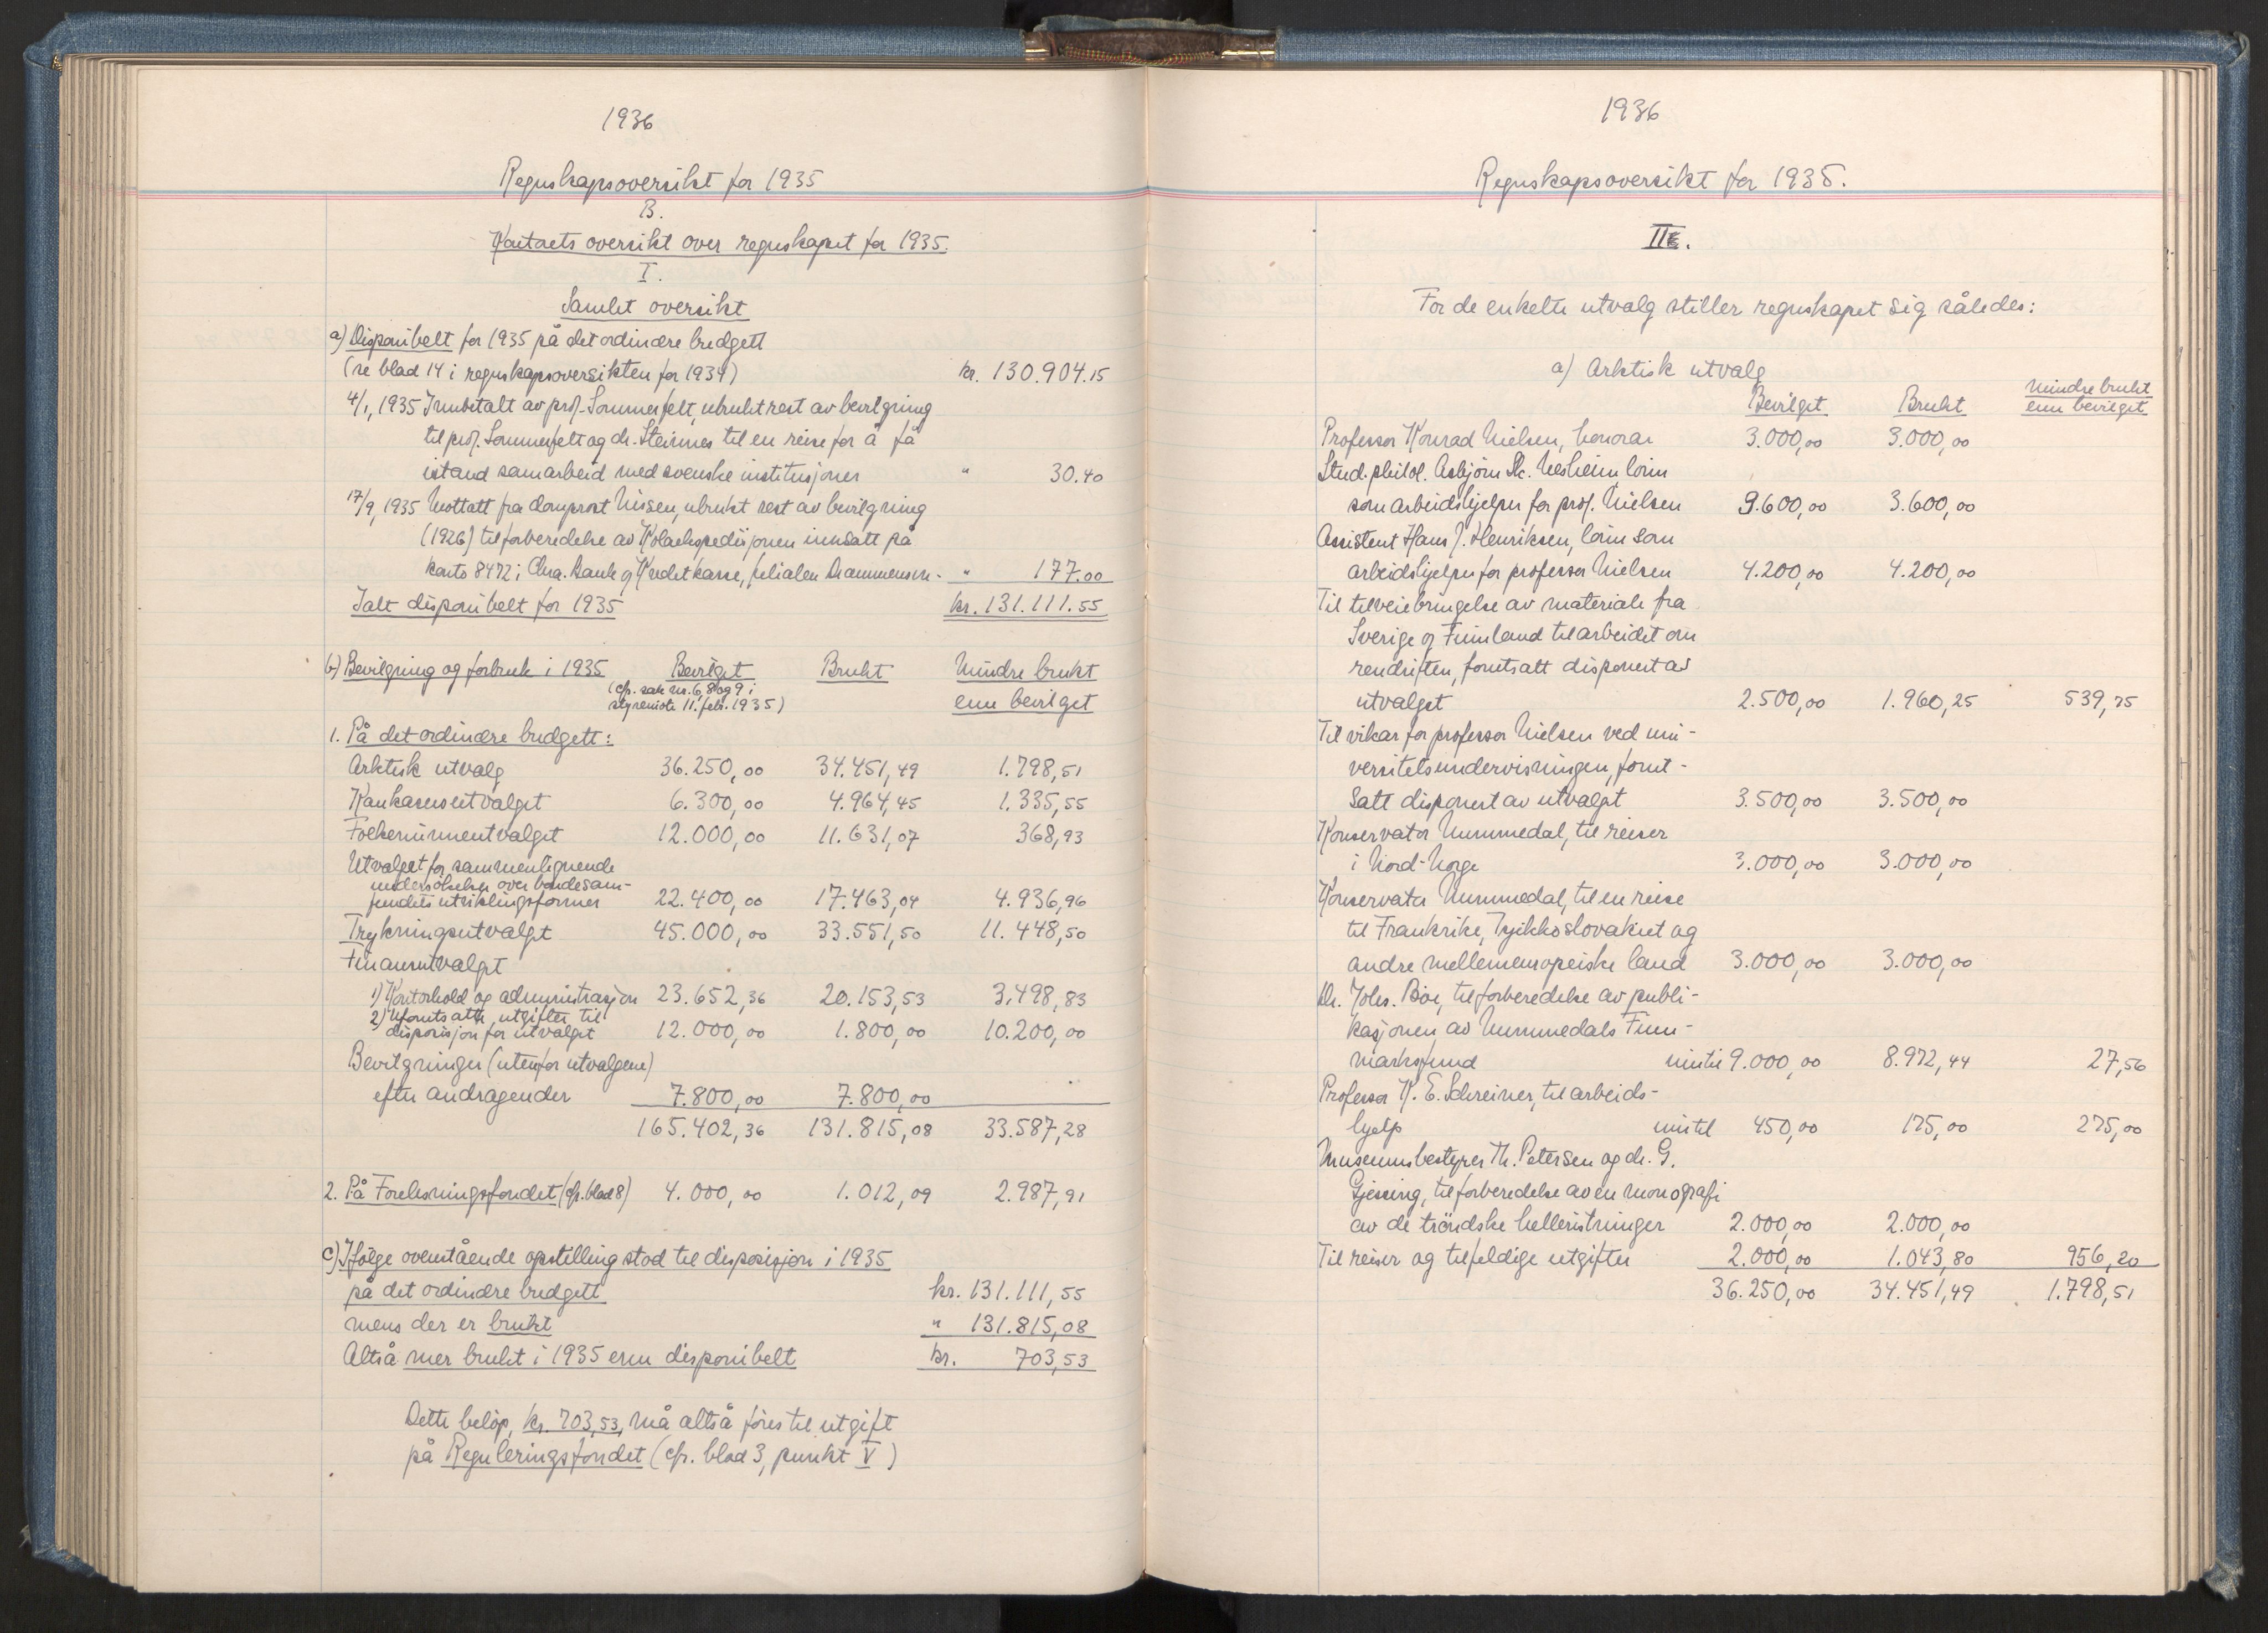 1936
Regnskapsoversikt for 1935
B.
Kontorets oversikt over regnskapet for 1935.
I.
Samlet oversikt
a) Disponibelt for 1935 på det ordinære budgett
(se blad 14 i regnskapsoversikten for 1934) kr. 130.904.15
4/1, 1935 Innbetalt av prof. Sommerfelt, ubrukt rest av bevilgning
til prof. Sommerfelt og dr. Steinnes til en reise for å få
istand samarbeid med svenske institusjoner " 30.40
17/9, 1935 Mottatt fra domprost Nissen, ubrukt rest av bevilgning
(1926) til forberedelse av Kolaekspedisjonen innsatt på
konto 8472 i Chra. Bank og Kreditkasse, filialen Drammensvn. - " 177.00
Ialt disponibelt for 1935 kr. 131.111.55
b) Bevilgning og forbruk i 1935 Bevilget Brukt Mindre brukt
(cfr. sak nr. 6, 8 og 9 i
styremøte 11. febr. 1935) enn bevilget
1. På det ordinære budgett:
Arktisk utvalg 36.250,00 34.451,49 1.798,51
Kaukasusutvalget 6.300,00 4.964,45 1.335,55
Folkeminneutvalget 12.000,00 11.631,07 368,93
Utvalget for sammenlignende
undersökelser over bondesam-
fundets utviklingsformer 22.400,00 17.463,04 4.936,96
Trykningsutvalget 45.000,00 33.551,50 11.448,50
Finansutvalget
1) Kontorhold og administrasjon 23.652,36 20.153,53 3.498,83
2) Uforutsatte utgifter til
disposisjon for utvalget 12.000,00 1.800,00 10.200,00
Bevilgninger (utenfor utvalgene)
efter andragender 7.800,00 7.800,00
165.402,36 131.815,08 33.587,28
2. På Forelesningsfondet (cfr. blad 8) 4.000,00 1.012,09 2.987,91
c) Ifölge ovenstående opstilling stod til disposisjon i 1935
på det ordinære budgett kr. 131.111,55
mens der er brukt " 131.815,08
Altså mer brukt i 1935 enn disponibelt kr. 703,53
Dette belöp, kr. 703,53, må altså föres til utgift
på Reguleringsfondet (cfr. blad 3, punkt V)
1936
Regnskapsoversikt for 1935.
II.
For de enkelte utvalg stiller regnskapet sig således:
a) Arktisk utvalg
Bevilget Brukt Mindre brukt
enn bevilget
Professor Konrad Nielsen, honorar 3.000,00 3.000,00
Stud. philol. Asbjörn Nesheim lönn
som arbeidshjelper for prof. Nielsen 3.600,00 3.600,00
Assistent Hans J. Henriksen, lönn som
arbeidshjelper for professor Nielsen 4.200,00 4.200,00
Til tilveiebringelse av materiale fra
Sverige og Finnland til arbeidet om
rendriften, forutsatt disponert av
utvalget 2.500,00 1.960,25 539,75
Til vikar for professor Nielsen ved uni-
versitetsundervisningen, forut-
satt disponert av utvalget 3.500,00 3.500,00
Konservator Nummedal, til reiser
i Nord-Norge 3.000,00 3.000,00
Konservator Nummedal, til en reise
til Frankrike, Tsjekkoslovakiet og
andre mellemeuropeiske land 3.000,00 3.000,00
Dr. Johs. Böe, til forberedelse av publi-
kasjonen av Nummedals Finn-
marksfund inntil 9.000,00 8.972,44 27,56
Professor K. E. Schreiner, til arbeids-
hjelp inntil 450,00 175,00 275,00
Museumsbestyrer Th. Petersen og dr. G.
Gjessing, til forberedelse av en monografi
av de tröndske helleristninger 2.000,00 2.000,00
Til reiser og tilfeldige utgifter 2.000,00 1.043,80 956,20
36.250,00 34.451,49 1.798,51